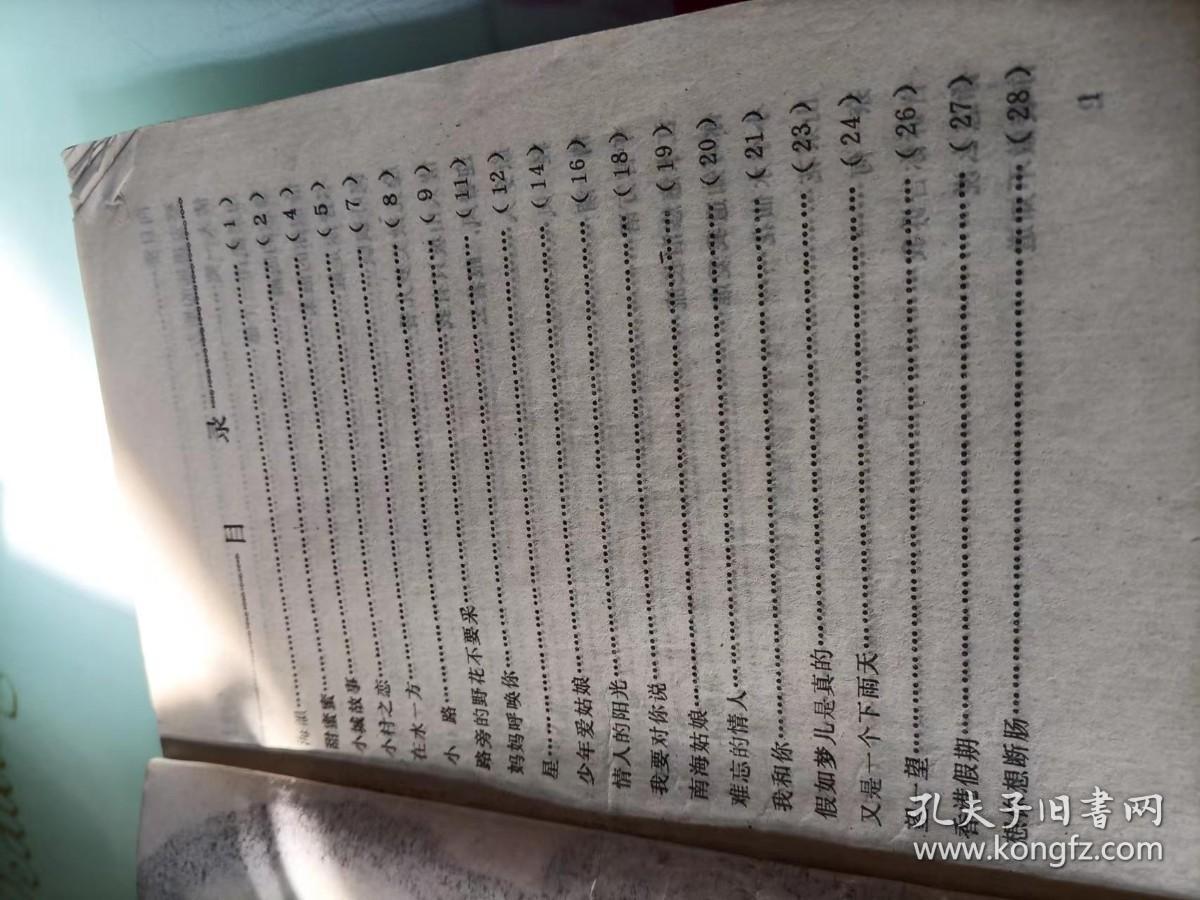 目录
……(1)
甜蜜蜜……(2)
小城故事……(4)
小村之恋……(5)
在水一方……(7)
小 路……(8)
路旁的野花不要采……(9)
妈妈呼唤你……(11)
星……(12)
少年爱姑娘……(14)
情人的阳光……(16)
我要对你说……(18)
南海姑娘……(19)
难忘的情人……(20)
我和你……(21)
假如梦儿是真的……(23)
又是一个下雨天……(24)
一望……(26)
香港假期……(27)
想断肠……(28)
1
孔夫子旧书网
www.kongfz.com